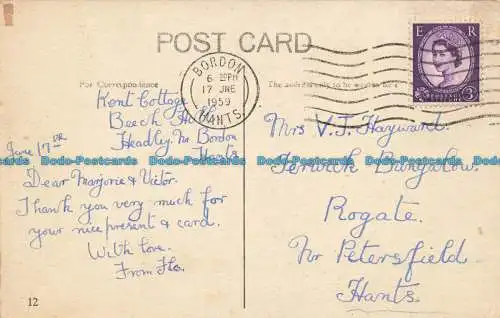 POST CARD
BORDON
6 PM
17 JNE
1959
HANTS.
E R
POSTAGE REVENUE
3D
For Correspondence
The address only to be written here
Kent Cottage
Beech Hill
Headley Nr Bordon
Hants
June 17th
Dear Marjorie & Victor.
Thank you very much for
your nice present & card.
With love.
From Flo.
Mrs V. J. Hayward.
Fenwick Bungalow.
Rogate.
Nr Petersfield
Hants.
12
Dodo-Postcards Dodo-Postcards Dodo-Postcards Dodo-Postcards Dodo-Postcards